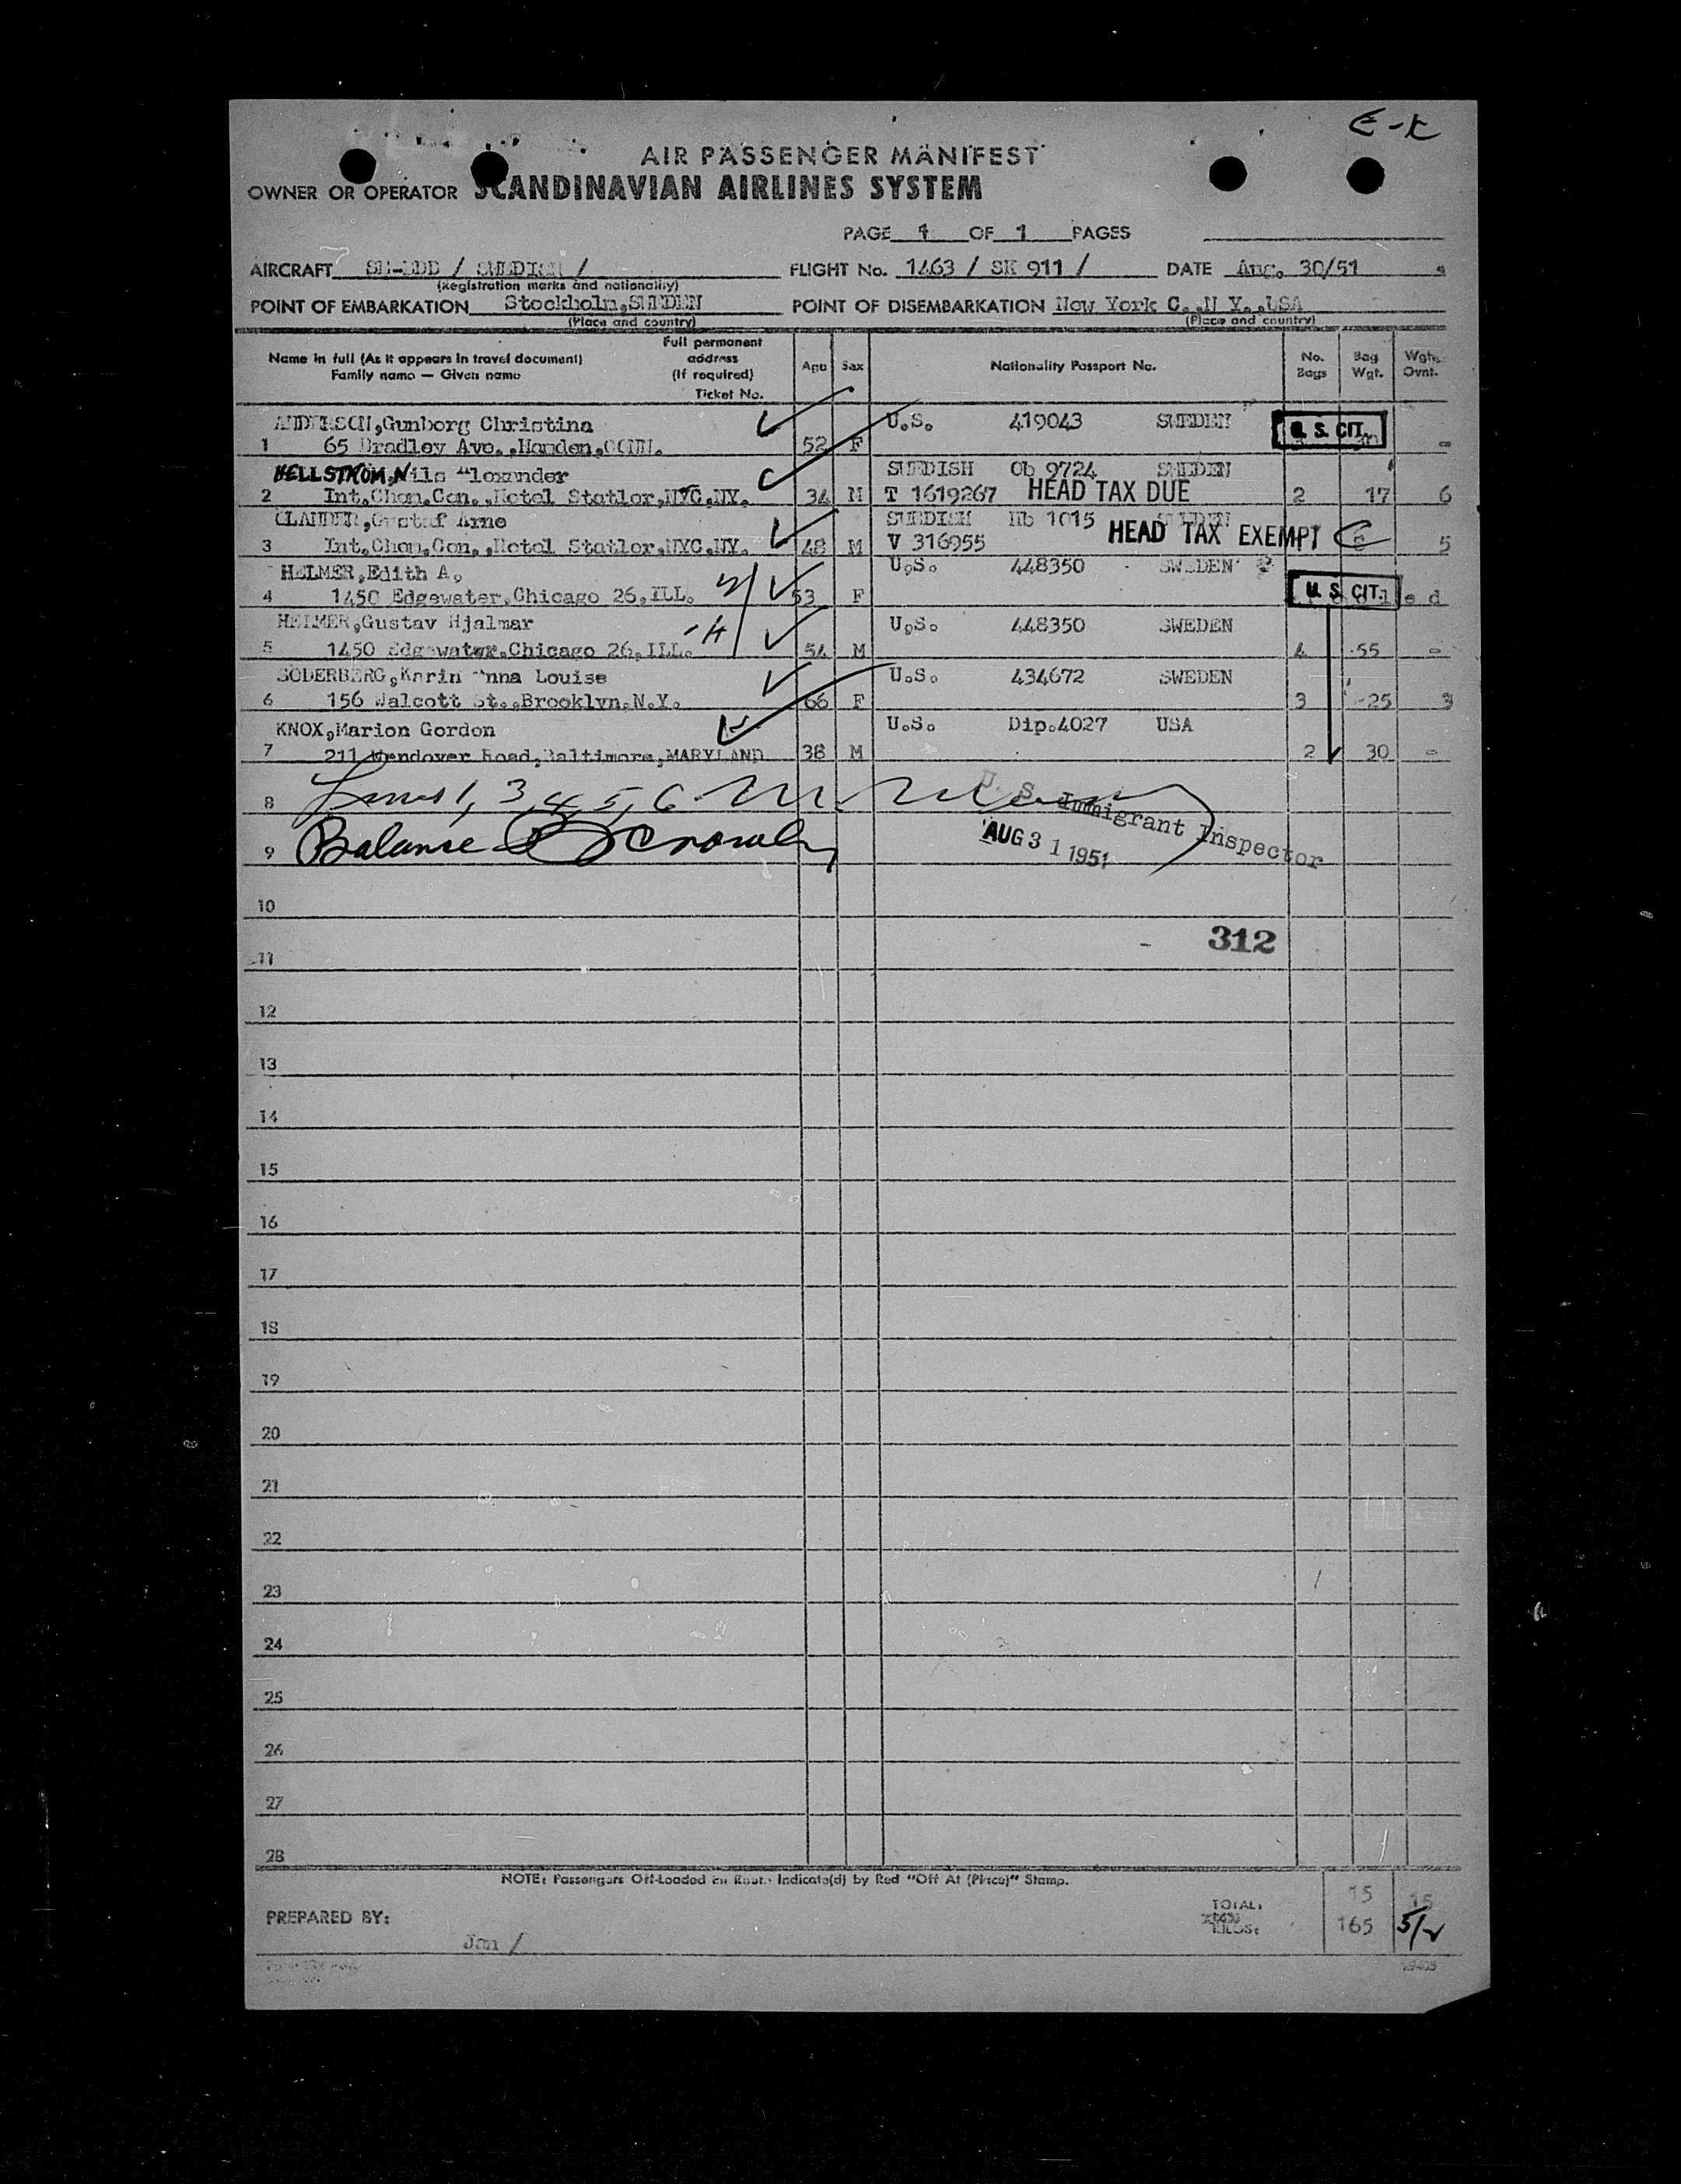 E-K
AIR PASSENGER MANIFEST
OWNER OR OPERATOR SCANDINAVIAN AIRLINES SYSTEM
PAGE 1 OF 1 PAGES
AIRCRAFT SE-BDD / SWEDISH / FLIGHT No. 1463 / SK 911 / DATE Aug. 30/51
(Registration marks and nationality)
POINT OF EMBARKATION Stockholm,SWEDEN POINT OF DISEMBARKATION New York C.,N Y.,USA
(Place and country) (Place and country)
Name in full (As it appears in travel document) Family name — Given name Full permanent address (If required) Ticket No. Age Sex Nationality Passport No. No. Bags Bag Wgt. Wgt. Ovnt.
ANDERSON,Gunborg Christina U.S. 419043 SWEDEN U. S. CIT.
1 65 Bradley Ave.,Hamden,CONN. 52 F -
HELLSTROM,Nils Alexander SWEDISH Ob 9724 SWEDEN
2 Int.Chem.Con.,Hotel Statler,NYC,NY. 34 M T 1619267 HEAD TAX DUE 2 17 6
CLANDER,Gustaf Arne SWEDISH Hb 1015 SWEDEN
3 Int.Chem.Con.,Hotel Statler,NYC,NY. 48 M V 316955 HEAD TAX EXEMPT 5
HELMER,Edith A. U.S. 448350 SWEDEN
4 1450 Edgewater,Chicago 26,ILL. W 53 F U. S. CIT.
HELMER,Gustav Hjalmar U.S. 448350 SWEDEN
5 1450 Edgewater,Chicago 26,ILL. H 54 M 4 55 -
SODERBERG,Karin Anna Louise U.S. 434672 SWEDEN
6 156 Walcott St.,Brooklyn,N.Y. 66 F 3 25 3
KNOX,Marion Gordon U.S. Dip.4027 USA
7 211 Wendover Road,Baltimore,MARYLAND 38 M 2 30 -
8 Lines 1, 3, 4, 5, 6
U. S. Immigrant Inspector
AUG 31 1951
9 Balance
10
312
11
12
13
14
15
16
17
18
19
20
21
22
23
24
25
26
27
28
NOTE: Passengers Off-Loaded En Route Indicate(d) by Red "Off At (Place)" Stamp.
TOTAL: 15 15
PREPARED BY: KILOS: 165 5/2
Jon /